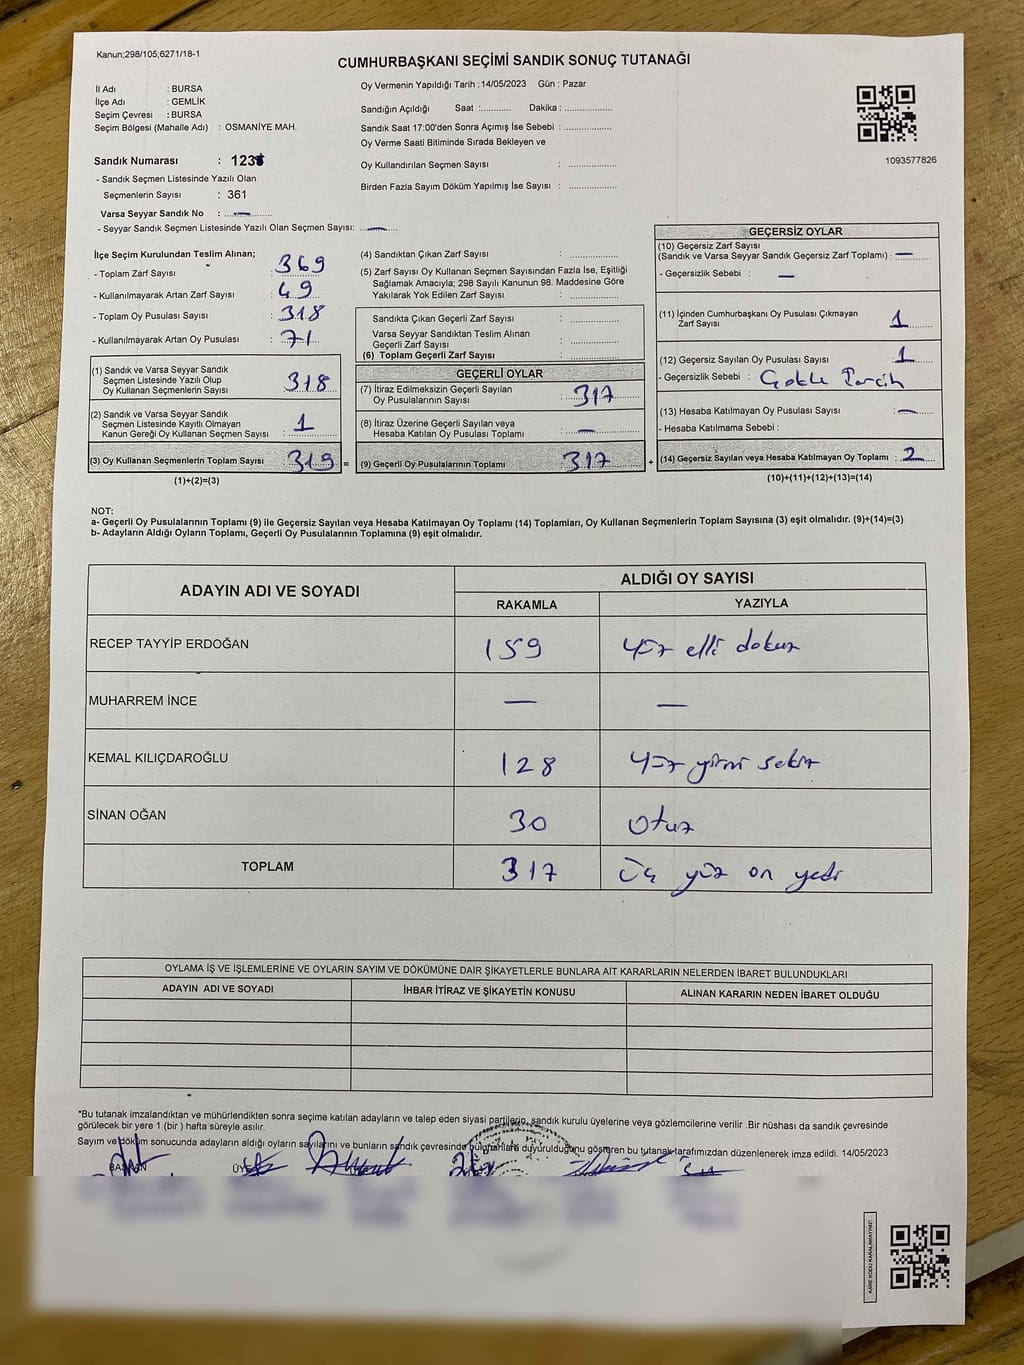 Kanun;298/105;6271/18-1
CUMHURBAŞKANI SEÇİMİ SANDIK SONUÇ TUTANAĞI
İl Adı : BURSA
İlçe Adı : GEMLİK
Seçim Çevresi : BURSA
Seçim Bölgesi (Mahalle Adı) : OSMANİYE MAH.
Sandık Numarası : 123
- Sandık Seçmen Listesinde Yazılı Olan
Seçmenlerin Sayısı : 361
Varsa Seyyar Sandık No : —
- Seyyar Sandık Seçmen Listesinde Yazılı Olan Seçmen Sayısı: —
Oy Vermenin Yapıldığı Tarih : 14/05/2023 Gün : Pazar
Sandığın Açıldığı Saat :........... Dakika : ................
Sandık Saat 17:00'den Sonra Açımış İse Sebebi : ................
Oy Verme Saati Bitiminde Sırada Bekleyen ve
Oy Kullandırılan Seçmen Sayısı : ................
Birden Fazla Sayım Döküm Yapılmış İse Sayısı : ................
1093577826
İlçe Seçim Kurulundan Teslim Alınan;
- Toplam Zarf Sayısı : 369
- Kullanılmayarak Artan Zarf Sayısı : 49
- Toplam Oy Pusulası Sayısı : 318
- Kullanılmayarak Artan Oy Pusulası : 71
(1) Sandık ve Varsa Seyyar Sandık
Seçmen Listesinde Yazılı Olup
Oy Kullanan Seçmenlerin Sayısı : 318
(2) Sandık ve Varsa Seyyar Sandık
Seçmen Listesinde Kayıtlı Olmayan
Kanun Gereği Oy Kullanan Seçmen Sayısı : 1
(3) Oy Kullanan Seçmenlerin Toplam Sayısı : 319 =
(1)+(2)=(3)
(4) Sandıktan Çıkan Zarf Sayısı : ................
(5) Zarf Sayısı Oy Kullanan Seçmen Sayısından Fazla İse, Eşitliği
Sağlamak Amacıyla; 298 Sayılı Kanunun 98. Maddesine Göre
Yakılarak Yok Edilen Zarf Sayısı : ................
Sandıkta Çıkan Geçerli Zarf Sayısı : ................
Varsa Seyyar Sandıktan Teslim Alınan
Geçerli Zarf Sayısı : ................
(6) Toplam Geçerli Zarf Sayısı : ................
GEÇERLİ OYLAR
(7) İtiraz Edilmeksizin Geçerli Sayılan
Oy Pusulalarının Sayısı : 317
(8) İtiraz Üzerine Geçerli Sayılan veya
Hesaba Katılan Oy Pusulası Toplamı : —
(9) Geçerli Oy Pusulalarının Toplamı : 317 +
GEÇERSİZ OYLAR
(10) Geçersiz Zarf Sayısı
(Sandık ve Varsa Seyyar Sandık Geçersiz Zarf Toplamı) : —
- Geçersizlik Sebebi : —
(11) İçinden Cumhurbaşkanı Oy Pusulası Çıkmayan
Zarf Sayısı : 1
(12) Geçersiz Sayılan Oy Pusulası Sayısı : 1
- Geçersizlik Sebebi :
(13) Hesaba Katılmayan Oy Pusulası Sayısı : —
- Hesaba Katılmama Sebebi :
(14) Geçersiz Sayılan veya Hesaba Katılmayan Oy Toplamı : 2
(10)+(11)+(12)+(13)=(14)
NOT:
a- Geçerli Oy Pusulalarının Toplamı (9) ile Geçersiz Sayılan veya Hesaba Katılmayan Oy Toplamı (14) Toplamları, Oy Kullanan Seçmenlerin Toplam Sayısına (3) eşit olmalıdır. (9)+(14)=(3)
b- Adayların Aldığı Oyların Toplamı, Geçerli Oy Pusulalarının Toplamına (9) eşit olmalıdır.
ADAYIN ADI VE SOYADI ALDIĞI OY SAYISI
RAKAMLA YAZIYLA
RECEP TAYYİP ERDOĞAN 159 yüz elli dokuz
MUHARREM İNCE — —
KEMAL KILIÇDAROĞLU 128 yüz yirmi sekiz
SİNAN OĞAN 30 Otuz
TOPLAM 317 üç yüz on yedi
OYLAMA İŞ VE İŞLEMLERİNE VE OYLARIN SAYIM VE DÖKÜMÜNE DAİR ŞİKAYETLERLE BUNLARA AİT KARARLARIN NELERDEN İBARET BULUNDUKLARI
ADAYIN ADI VE SOYADI İHBAR İTİRAZ VE ŞİKAYETİN KONUSU ALINAN KARARIN NEDEN İBARET OLDUĞU
*Bu tutanak imzalandıktan ve mühürlendikten sonra seçime katılan adayların ve talep eden siyasi partilerin, sandık kurulu üyelerine veya gözlemcilerine verilir .Bir nüshası da sandık çevresinde
görülecek bir yere 1 (bir ) hafta süreyle asılır.
Sayım ve döküm sonucunda adayların aldığı oyların sayılarını ve bunların sandık çevresinde bulunanlara duyurulduğunu gösteren bu tutanak tarafımızdan düzenlenerek imza edildi. 14/05/2023
BAŞKAN ÜYE
KARE KODU KARALAMAYINIZ!